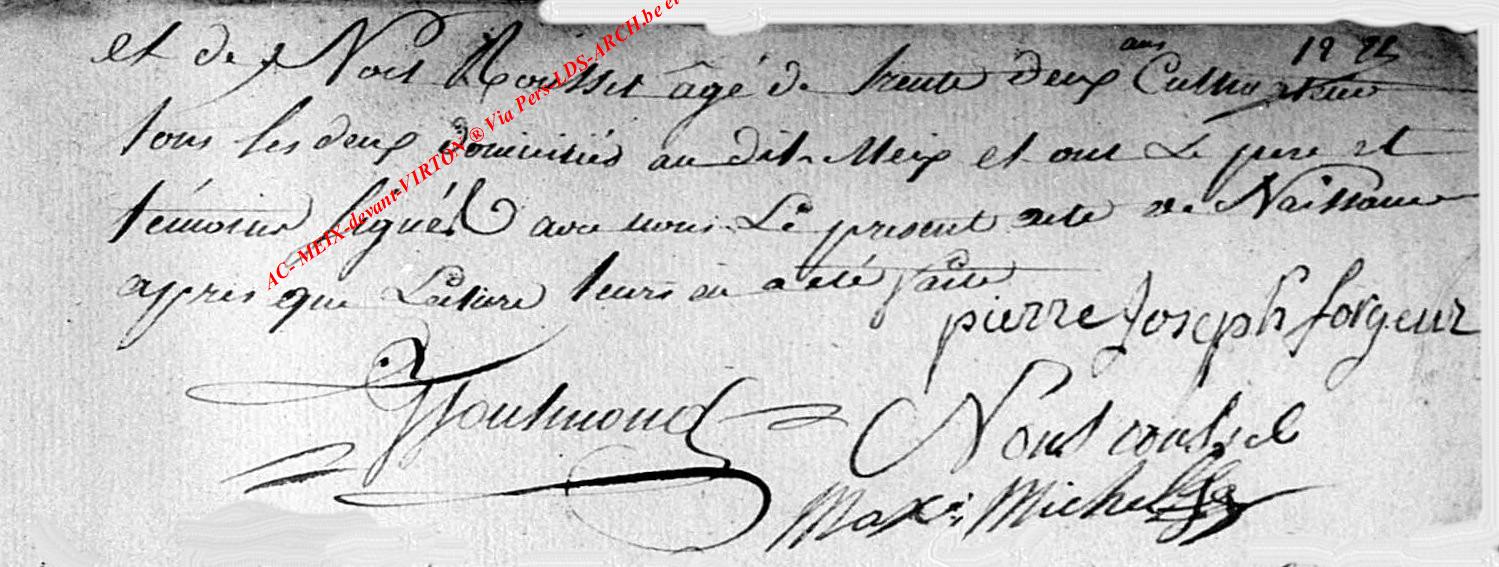 et de Noel Rousset âgé de trente deux ans Cultivateur
tous les deux domiciliés au dit Meix et ont Le pere et
témoins signés avec nous Le present acte de Naissance
appres que Lecture leurs en a eté faite
pierre Joseph forgeur
Maxi: Michel
AC- MEIX-devant-VIRTON® Via Pers-LDS-ARCH.be et